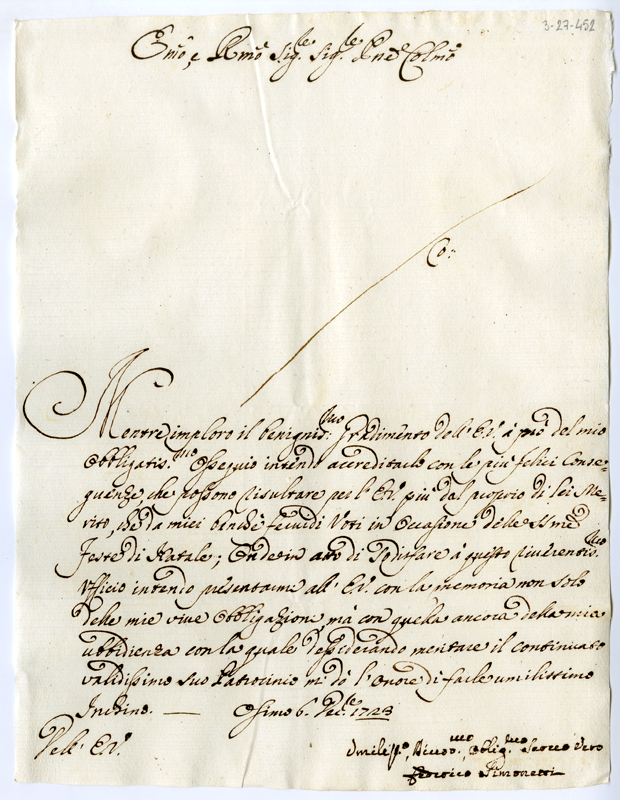 3-27-452
Emo, e Rmo Sig.re Sig.re Pne Colmo
Co:
Mentre imploro il benignis.mo gradimento dell' E.V. à pro del mio
Obbligatis.mo Ossequio intendo accreditarlo con le più felici Conse-
guenze che possono risultare per l' E.V. più dal proprio di lei Me-
rito, che da miei benche fecondi Voti in Occasione delle SSme
Feste di Natale; Onde in atto di sodisfare à questo riverentis.mo
Ufficio intendo presentarmi all' E.V. con la memoria non solo
delle mie vive Obbligazione, mà con quella ancora della mia
ubbidienza con la quale desiderando meritare il continuato
validissimo suo Patrocinio mi dò l'onore di farle umilissimo
Inchino. — Osimo 6. Dec.re 1723
Dell' E.V.
Umiliss.o, Divot.mo, Oblig.mo Servo Vero
Federico Simonetti